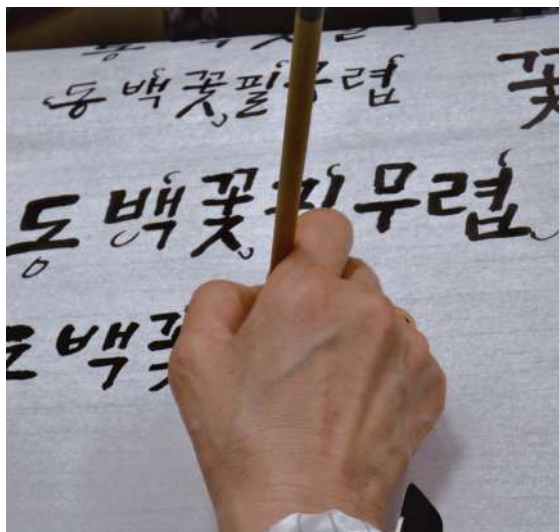 동백꽃필무렵
꽃
동백꽃필무렵
동백꽃